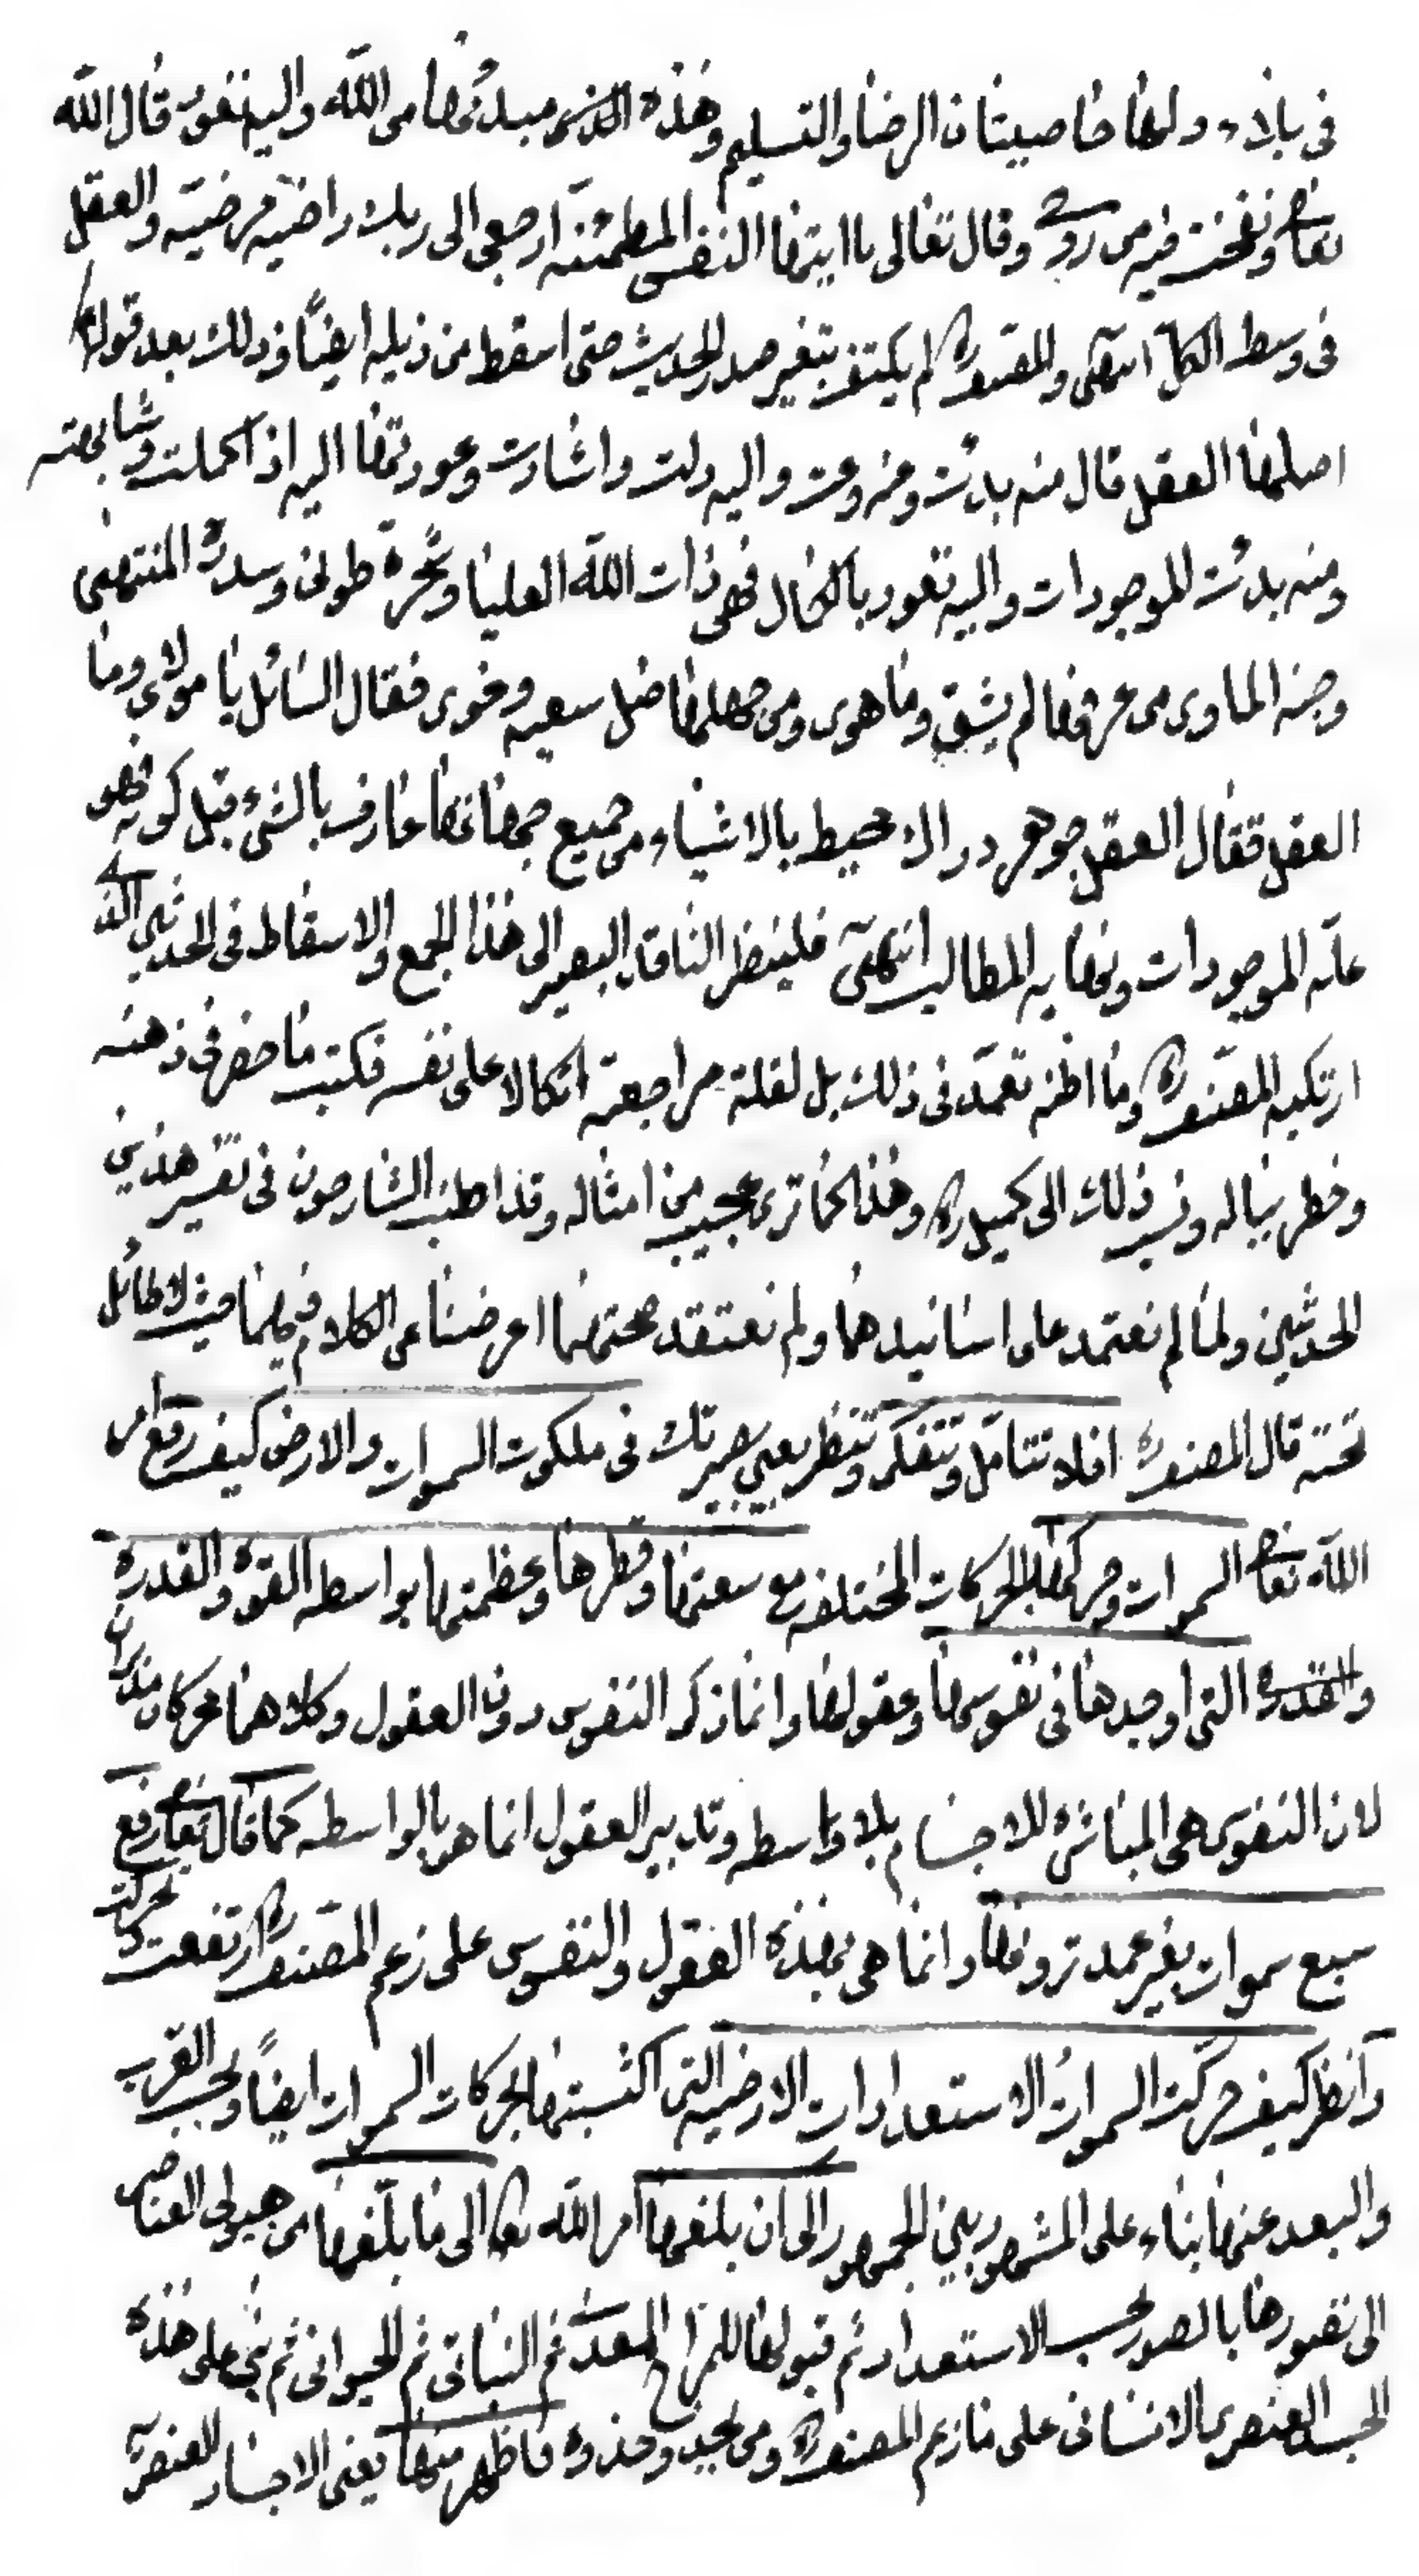 فى بلاء ولها خاصيتان الرضا والتسليم وهذه التى مبدئها من الله واليه تعود قال الله
تعالى ونفخت فيه من روحى وقال تعالى يا ايتها النفس المطمئنه ارجعى الى ربك راضيه مرضيه والعقل
فى وسط الكل انتهى والمصنف ره لم يكتف بتغير صدر الحديث حتى اسقط من ذيله ايضًا وذلك بعد قوله
اصلها العقل قال منه بدئت وعنه وعت واليه دلت واشارت وعودتها اليه اذا كملت وشابهته
ومنه بدئت الموجودات واليه تعود بالكمال فهى ذات الله العليا وشجرة طوبى وسدرة المنتهى
وجنه الماوى من عرفها لم يشق وما هوى ومن جهلها ضل سعيه وغوى فقال السائل يا مولاى وما
العقل فقال العقل جوهر دراك محيط بالاشياء من جميع جهاتها عارف بالشىء قبل كونه فهو
علة الموجودات ونهايه المطالب انتهى فلينظر الناقد البصير الى هذا الجمع والاسقاط فى الحديثين الذى
ارتكبه المصنف ره وما اظنه تعمد فى ذلك بل لقلة مراجعته اتكالا على نفسه فكتب ما حضر فى ذهنه
وخطر بباله ونسب ذلك الى كميل ره وهذا كما ترى عجيب من امثاله وقد اطنب الشارحون فى تفسير هذين
الحديثين ولما لم نعتمد على اسانيدهما ولم نعتقد صحتهما اعرضنا عن الكلام فيهما حيث لا طائل
تحته قال المصنف ره افلا تتامل وتتفكر وتنظر بعين بصيرتك فى ملكوت السموات والارض كيف رفع
الله تعالى السموات وحركها بالحركات المختلفه مع سعتها وقطرها وعظمتها بواسطه القوة والقدره
والقدره التى اوجدها فى نفوسها وعقولها وانما ذكر النفوس دون العقول وكلاهما محركان مدبران
لان النفوس هى المباشره للاجسام بلا واسطه وتدبير العقول انما هو بالواسطه كما قال تعالى رفع
سبع سموات بغير عمد ترونها وانما هى بهذه العقول والنفوس على زعم المصنف ره ارتفعت وتحركت
وانظر كيف حركت السموات الاستعدادات الارضيه التى اكتسبتها بحركات السموات ايضًا وبحسب القرب
والبعد عنها بناء على المشهور بين الجمهور الى ان بلغها امر الله تعالى الى ما بلغها من هيولى العناصر
الى تصورها بالصور بحسب الاستعداد ثم قبولها للمزاج المعدنى ثم النباتى ثم الحيوانى ثم على هذه
الجسد العنصرى الانسانى على ما زعم المصنف ره ومن يحذو حذوه فاظهر منها يعنى الاجساد العنصريه